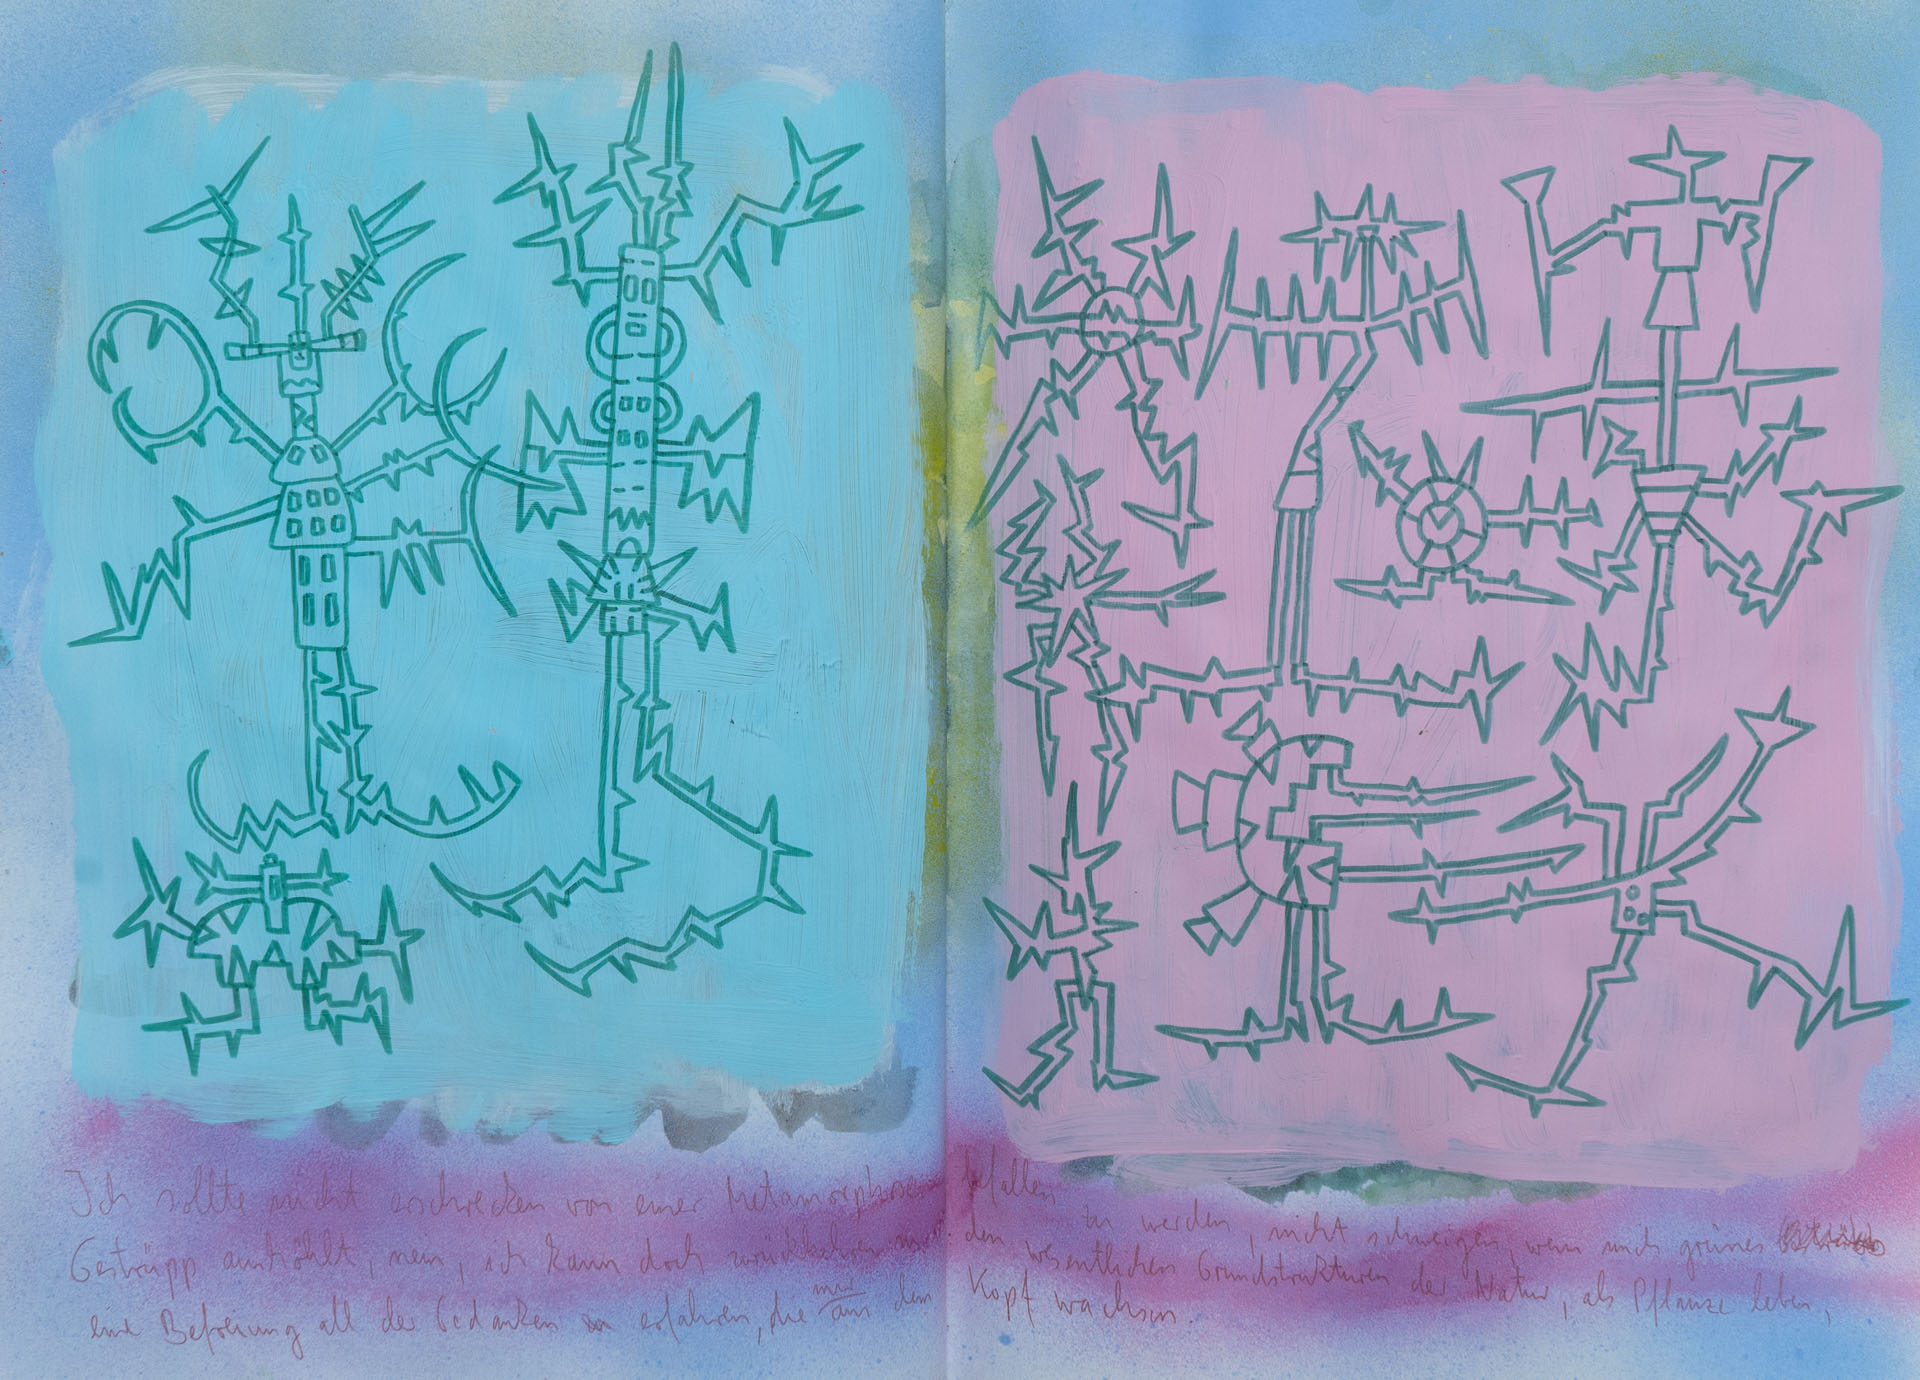 Ich sollte nicht erschrecken von einer Metamorphose befallen zu werden, nicht schweigen, wenn mich grünes
Gestrüpp aushöhlt, nein, ich kann doch zurückkehren zu den wesentlichen Grundstrukturen der Natur, als Pflanze leben,
eine Befreiung all der Gedanken zu erfahren, die mir aus dem Kopf wachsen.